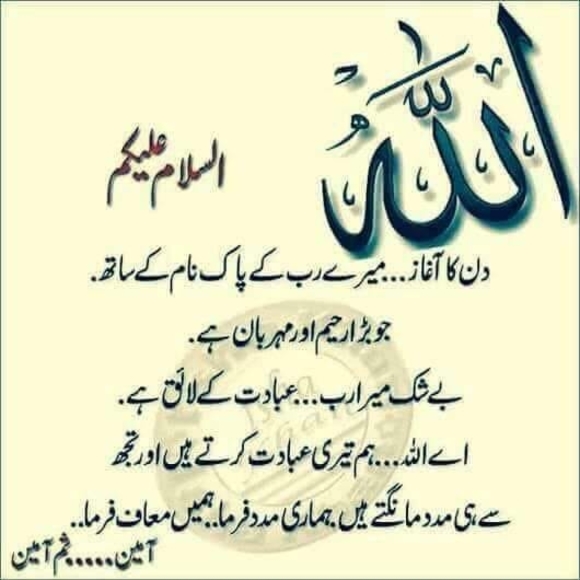 اللهُ
السلام علیکم
دن کا آغاز...میرے رب کے پاک نام کے ساتھ.
جو بڑا رحیم اور مہربان ہے.
بے شک میرا رب...عبادت کے لائق ہے.
اے اللہ...ہم تیری عبادت کرتے ہیں اور تجھ
سے ہی مدد مانگتے ہیں.ہماری مدد فرما..ہمیں معاف فرما..
آمین.....ثم آمین